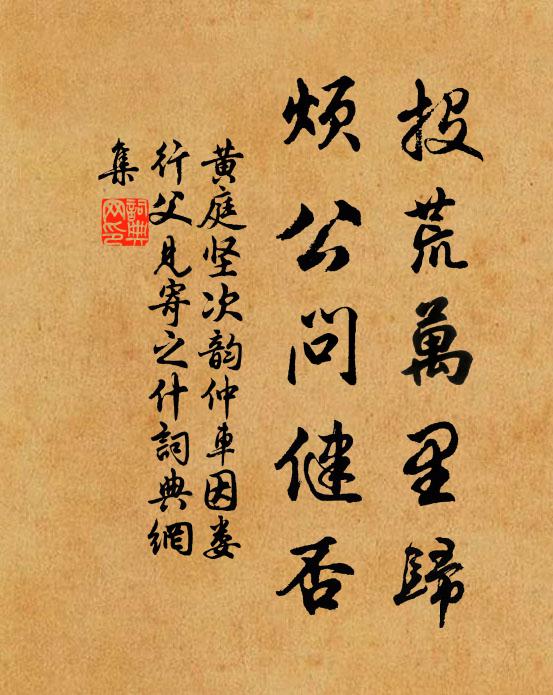 投荒萬里歸
煩公問健否
黄庭坚次韵仲車因娄
行父見寄之什詞典網
集
詞典
网印